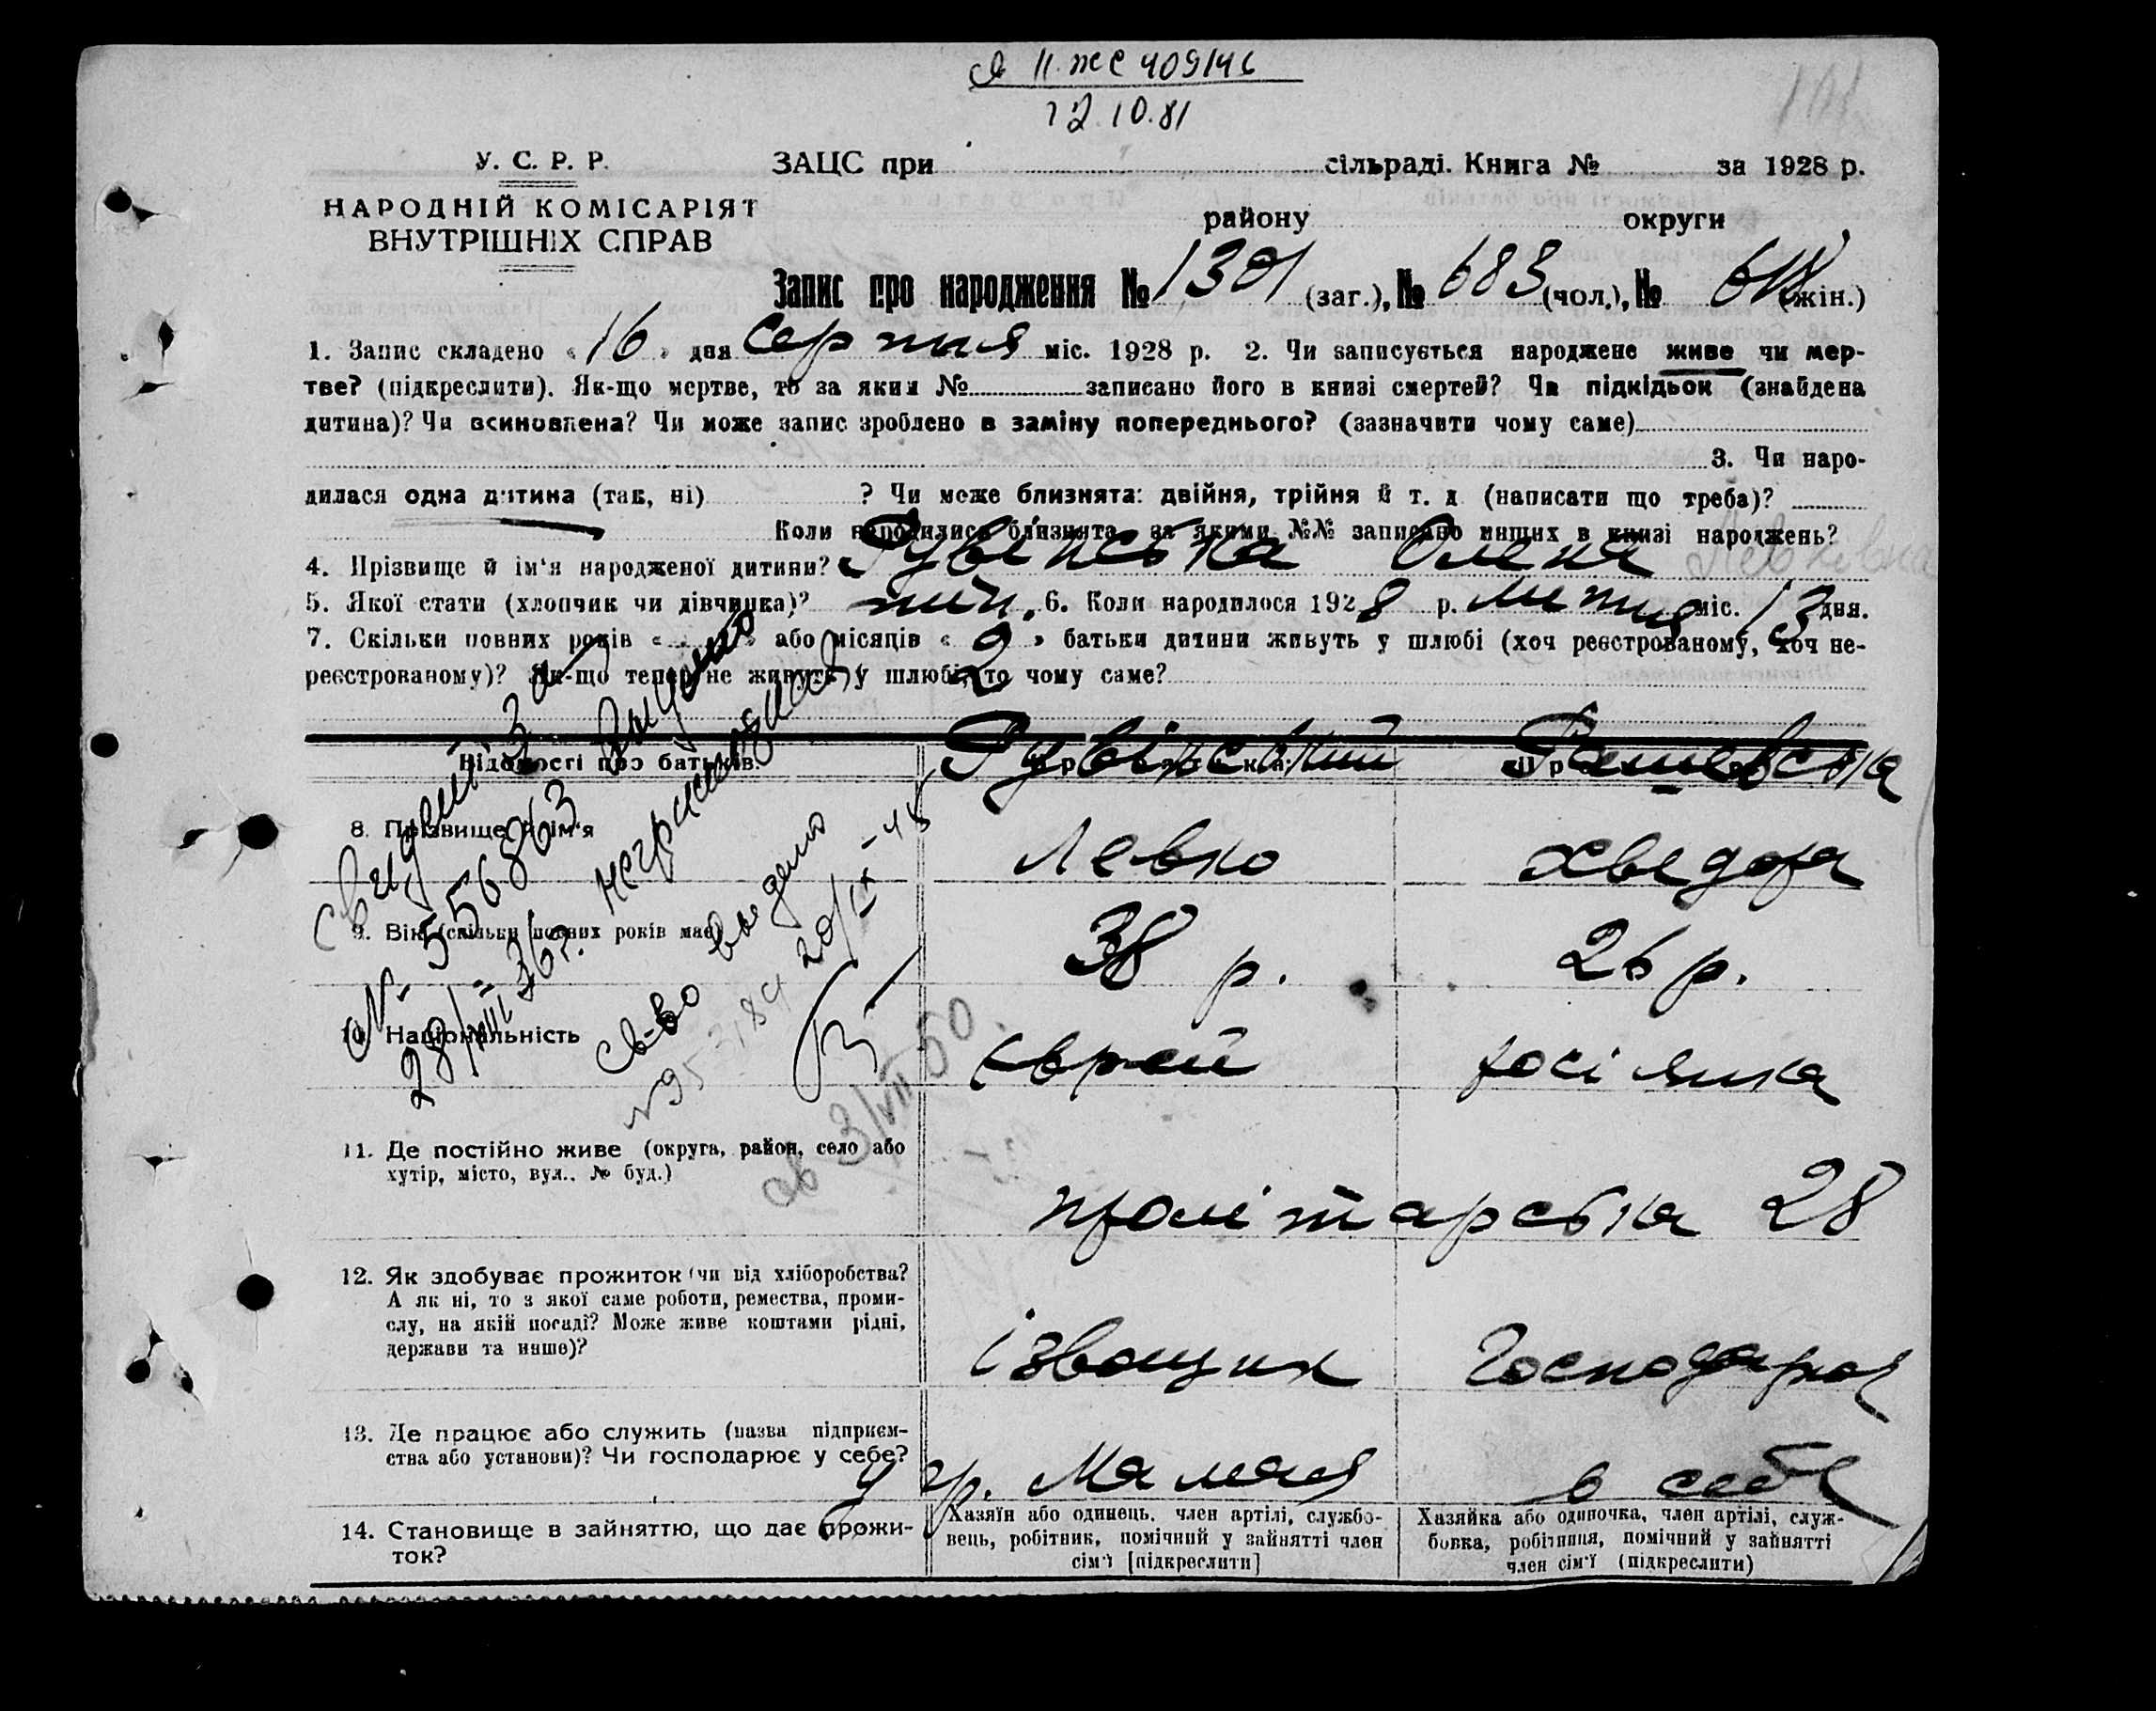 II-ЖС 409146
12.10.81
У. С. Р. Р.
НАРОДНІЙ КОМІСАРІЯТ
ВНУТРІШНІХ СПРАВ
ЗАЦС при сільраді. Книга № за 1928 р.
району округи
Запис про народження № 1301 (заг.), № 683 (чол.), № 618 (жін.)
1. Запис складено « 16 » дня Серпня міс. 1928 р. 2. Чи записується народжене живе чи мер-
тве? (підкреслити). Як-що мертве, то за яким № записано його в книзі смертей? Чи підкідьок (знайдена
дитина)? Чи всиновлена? Чи може запис зроблено в заміну попереднього? (зазначити чому саме)
3. Чи наро-
дилася одна дитина (так, ні) ? Чи може близнята: двійня, трійня й т. д (написати що треба)?
Коли народилися близнята, за якими №№ записано инших в книзі народжень?
4. Прізвище й ім'я народженої дитини? Рувінська Олена Левківна
5. Якої стати (хлопчик чи дівчинка)? жін. 6. Коли народилося 1928 р. липня міс. 13 дня.
7. Скільки повних років « » або місяців « 9 » батьки дитини живуть у шлюбі (хоч реєстрованому, хоч не-
реєстрованому)? Як-що тепер не живуть у шлюбі, то чому саме?
Відомості про батьків.
8. Прізвище й ім'я
Рувінський Рашевська
Левко Хведора
9. Вік (скільки повних років має)
38 р. 26 р.
10. Національність
Єврей росіянка
11. Де постійно живе (округа, район, село або
хутір, місто, вул., № буд.)
пролітарська 28
12. Як здобуває прожиток (чи від хліборобства?
А як ні, то з якої саме роботи, ремества, проми-
слу, на якій посаді? Може живе коштами рідні,
держави та инше)?
ізвощик Господарка
13. Де працює або служить (назва підприєм-
ства або установи)? Чи господарює у себе?
у гр. Мамая в себе
14. Становище в зайняттю, що дає прожи-
ток?
Хазяїн або одинець, член артілі, службо-
вець, робітник, помічний у зайнятті член
сім'ї [підкреслити]
Хазяйка або одиночка, член артілі, служ-
бовка, робітниця, помічний у зайнятті
член сім'ї (підкреслити)
Свидет. за
№ 556863 выдано
28/VIII 36 г.
св-во выдано
20/IX-48
св 3/VII 50